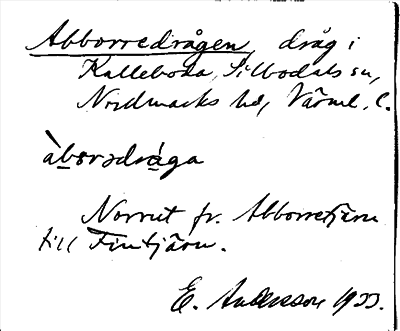 Abborredrågen, dråg i
Kalleboda, Silbodals sn,
Nordmarks hd, Värml. l.
àbɷrədråga
Norrut fr. Abborretjärn
till Fintjärn.
E. Andersson 1933.